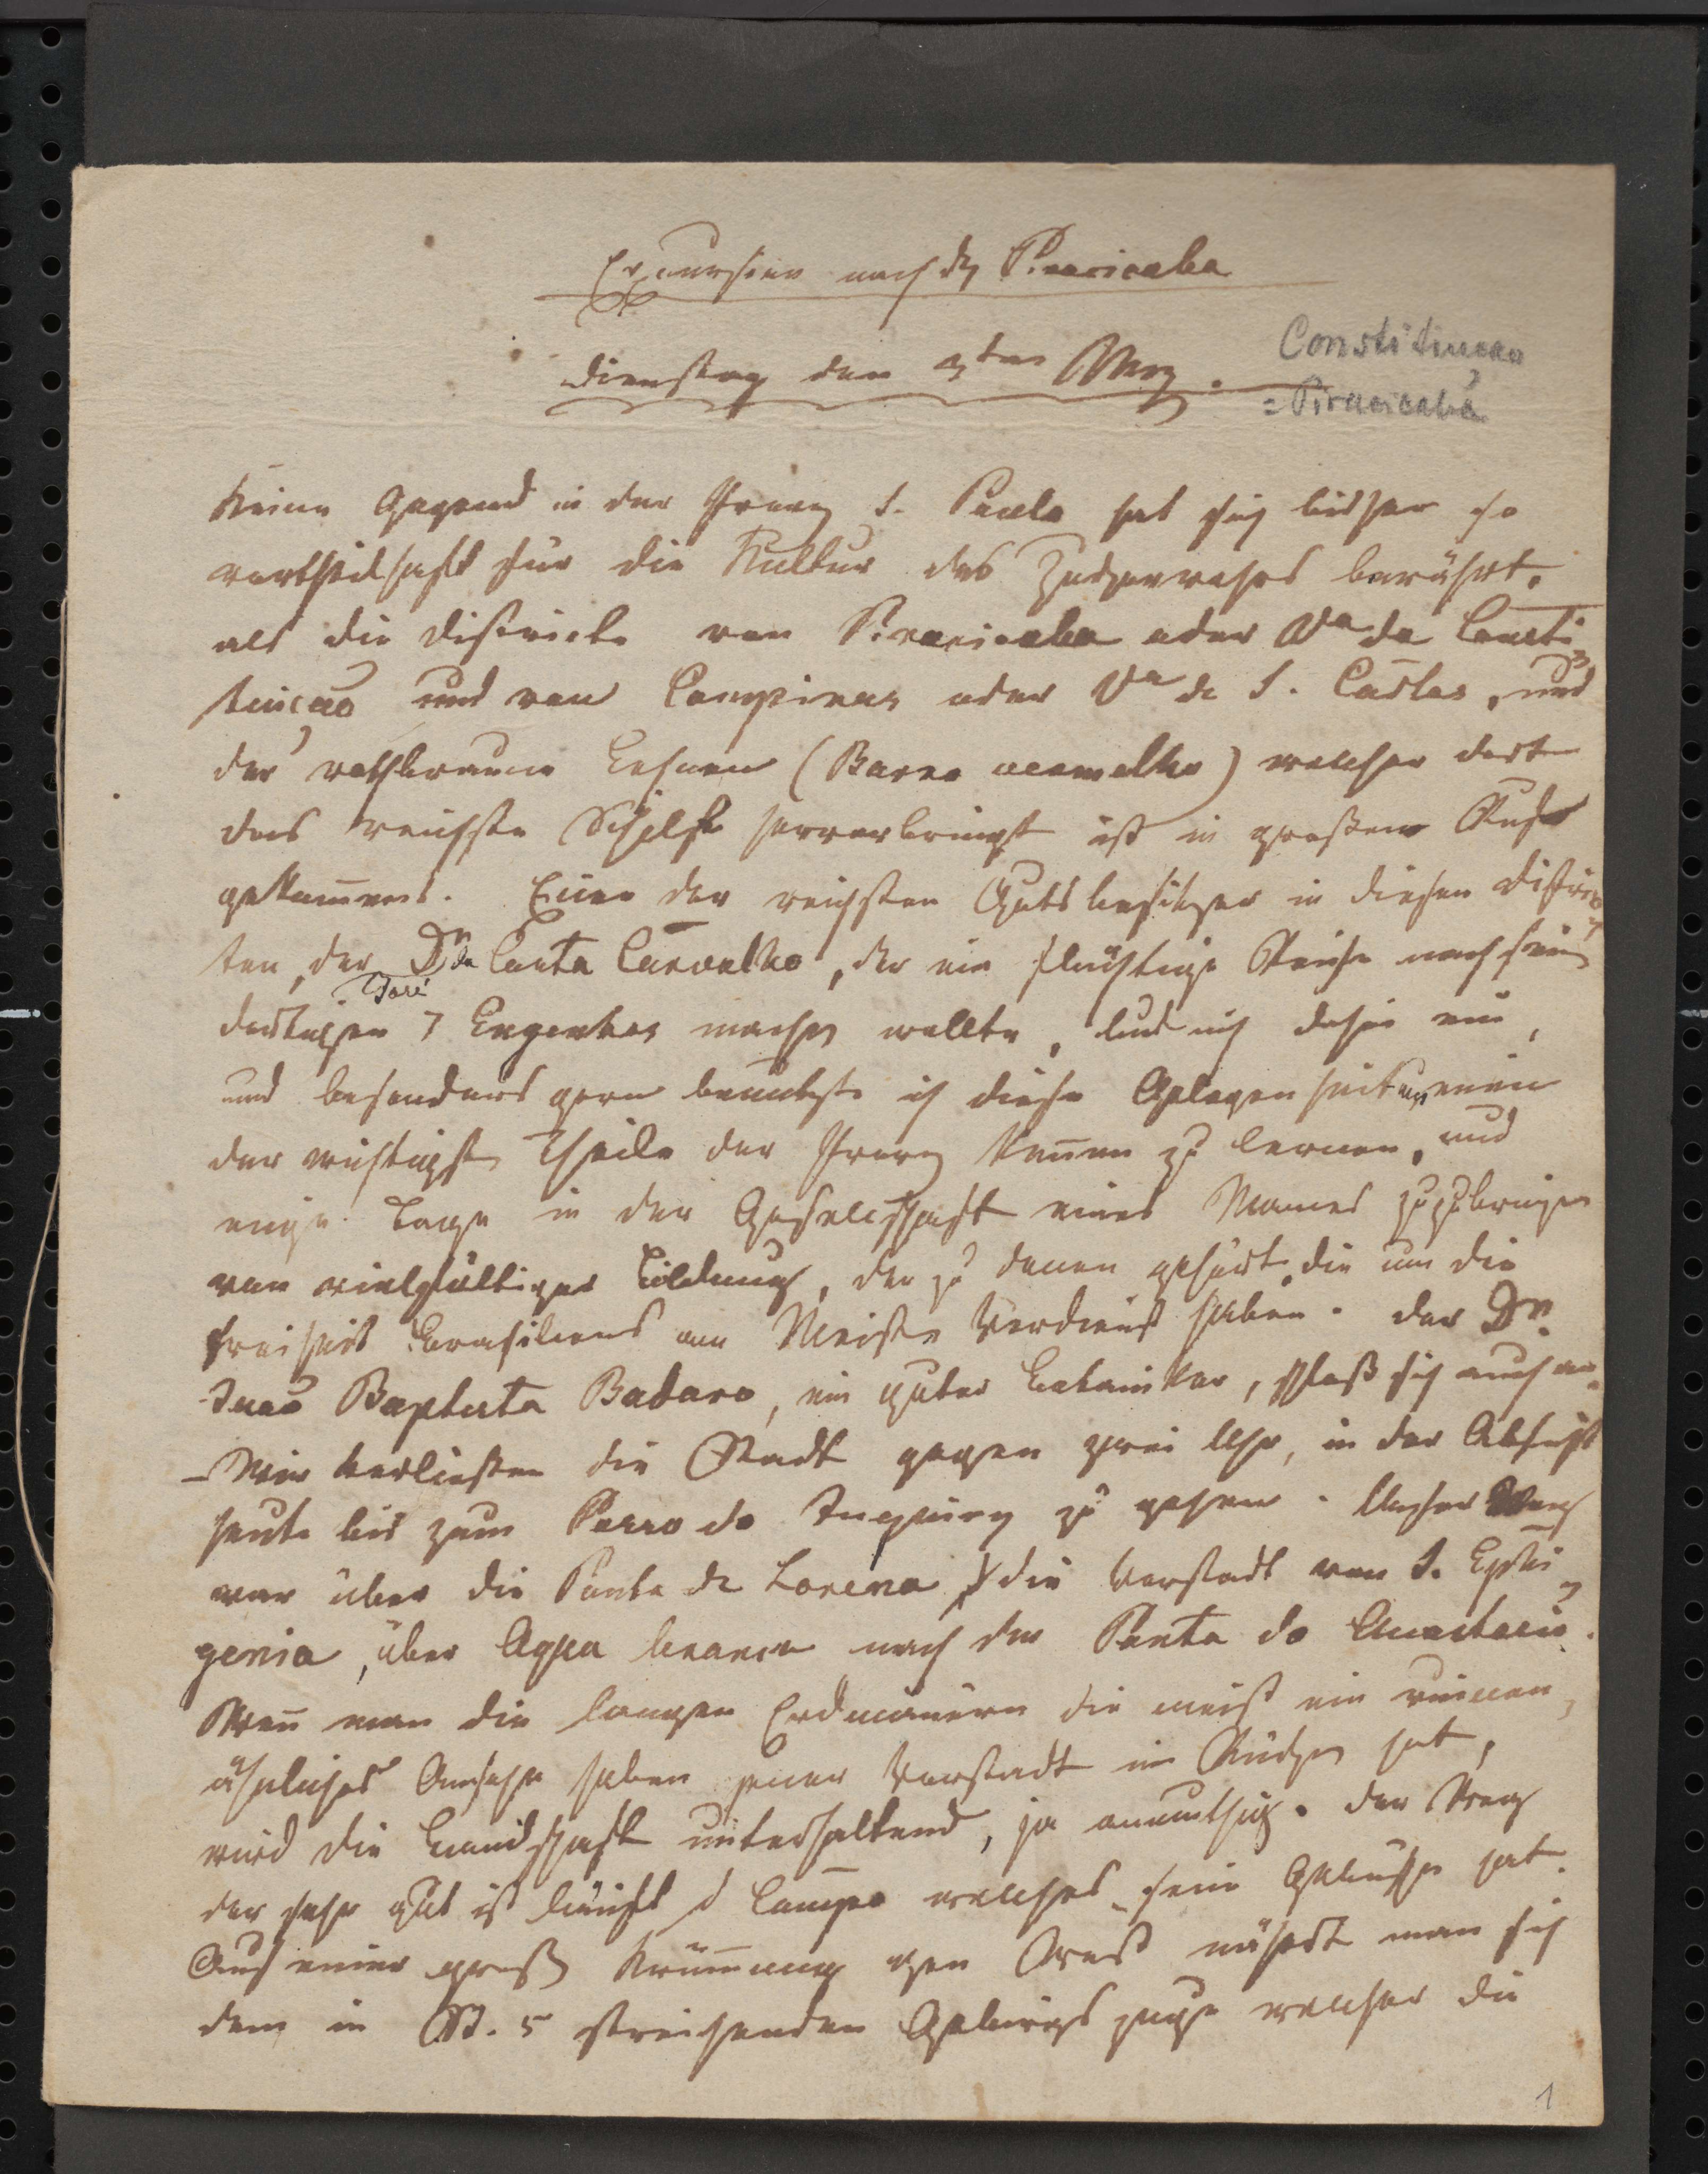 Excursion nach dem Piracicaba
Dienstag den 3ten März.
Constituicao
= Piracicaba
Keine Gegend in der Provinz S. Paulo hat sich bisher so
vortheilhaft für die Kultur des Zuckerrohrs bewährt,
als die Districte von Piracicaba oder Va da Consti
tuiçao und von Campinas oder Va de S. Carlos, und
der rothbraune Lehmen (Barro vermelho) welcher dort
das reichste Schilf hervorbringt ist in großem Ruf
gekommen. Einer der reichsten Gutsbesitzer in diesen Distric
ten, der Dr da Costa Carvalho, der eine flüchtige Reise nach sein
José
dortigen 7 Engenhos machen wollte, lud mich dahin ein,
und besonders gern benutzte ich diese Gelegenheit um einen
der wichtigsten Theile der Provinz kennen zu lernen, und
einige Tage in der Gesellschaft eines Mannes zuzubringen
von vielfältiger Bildung, der zu denen gehört, die um die
Freiheit Brasiliens am Meisten Verdienst haben. Der Dr.
Joao Baptista Badaro, ein guter Botaniker, schloß sich auch an.
– Wir verließen die Stadt gegen zwei Uhr, in der Absicht
heute bis zum Passo do zu gehen. Unser Weg
war über die Ponte de Lorena, die Vorstadt von S. Ephi
genia, über Agua branca nach der Ponte do Anastacio.
Wenn man die langen Erdmauern die meist ein ruinen
ähnliches Ansehn haben jener Vorstadt im Rücken hat,
wird die Landschaft unterhaltend, ja anmuthig. Der Weg
der sehr gut ist läuft d Campo welches sein Gebüsch hat.
Aus einer großen Krümmung gen West nähert man sich
dem in St. 5 streichenden Gebirgszuge welcher die
1